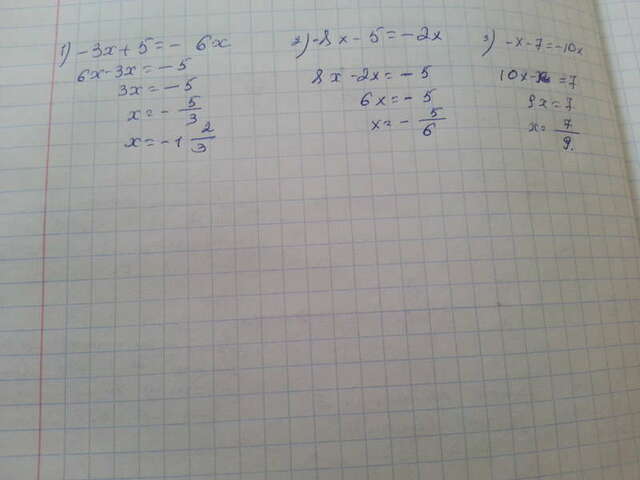 1) -3x + 5 = - 6x
6x - 3x = - 5
3x = - 5
x = - 5/3
x = -1 2/3
2) -8x - 5 = -2x
8x - 2x = - 5
6x = - 5
x = - 5/6
3) -x - 7 = -10x
10x - x = 7
9x = 7
x = 7/9.